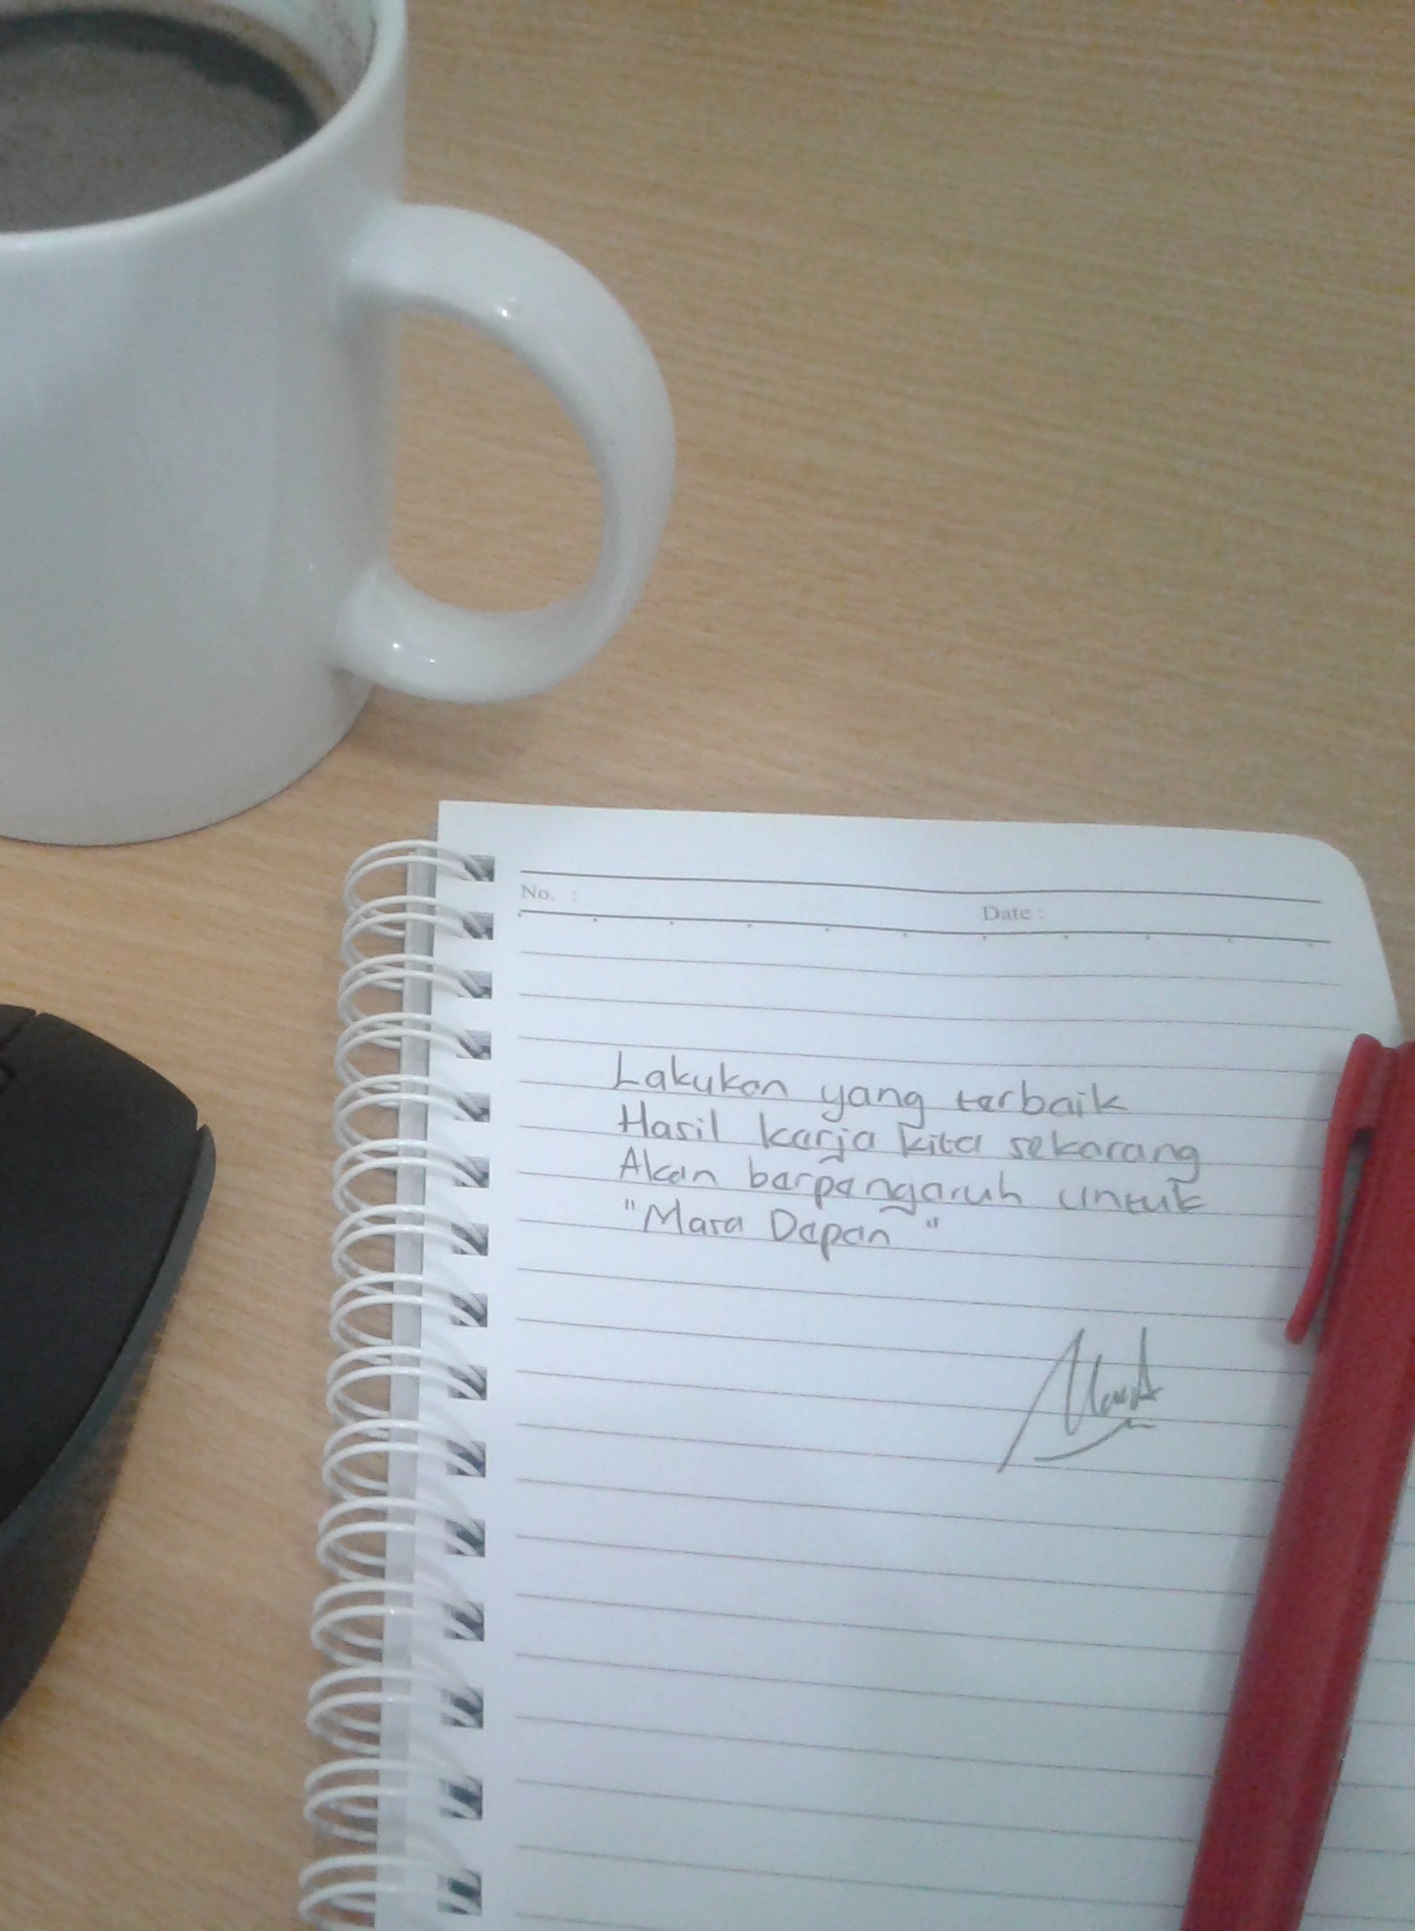 No. :
Date :
Lakukan yang terbaik
Hasil kerja kita sekarang
Akan berpengaruh untuk
"Masa Depan"